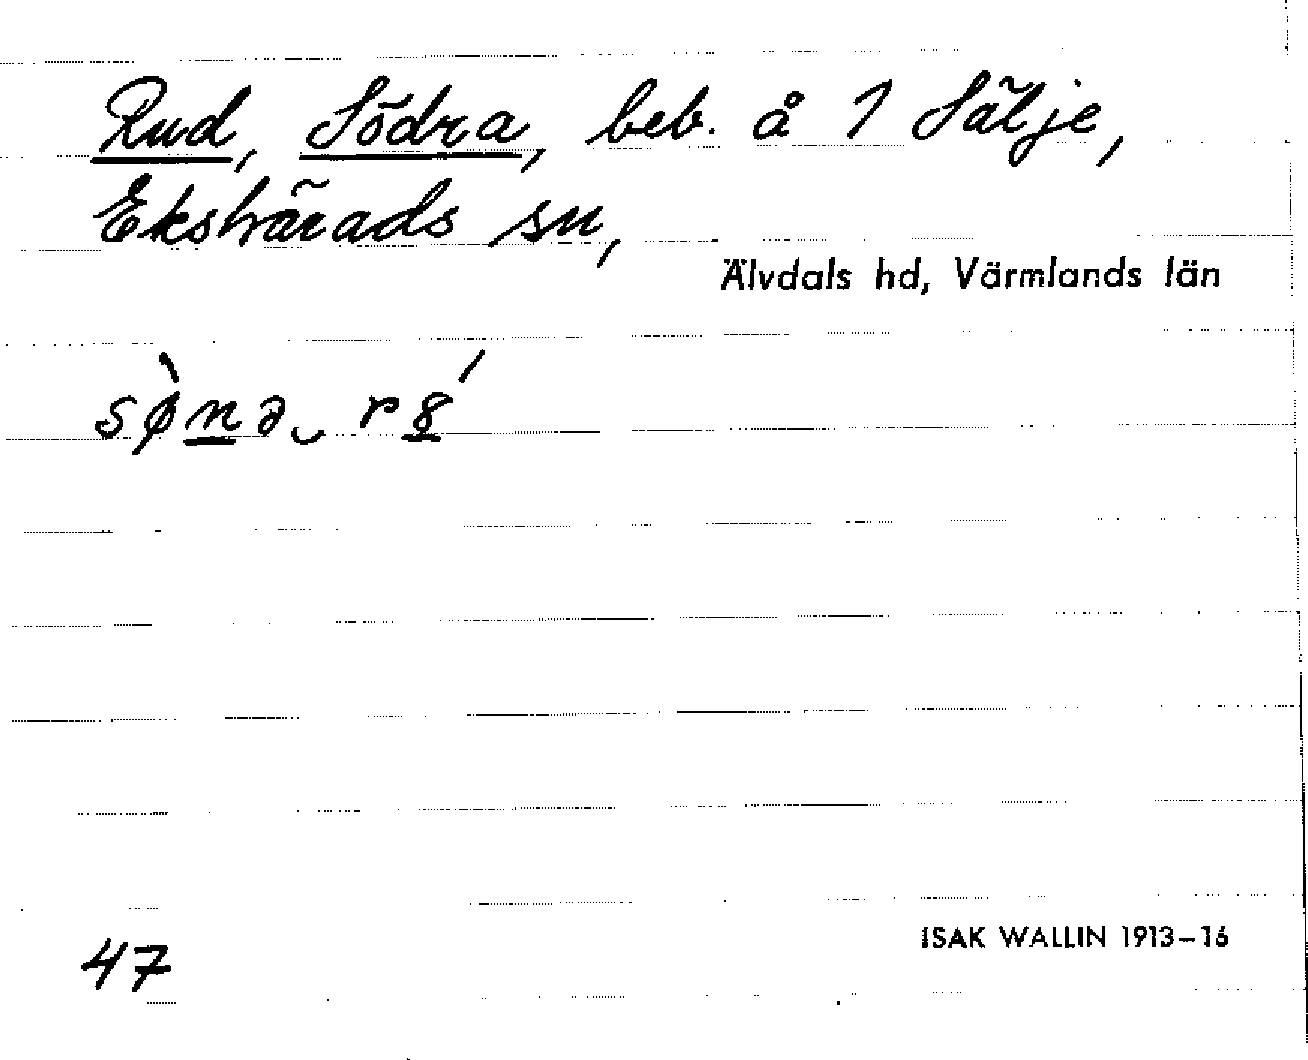 Rud, Södra, beb. å 1 Sälje,
Ekshärads sn,
Älvdals hd, Värmlands län
sø̀nə‿ rȣ́
47
ISAK WALLIN 1913–16